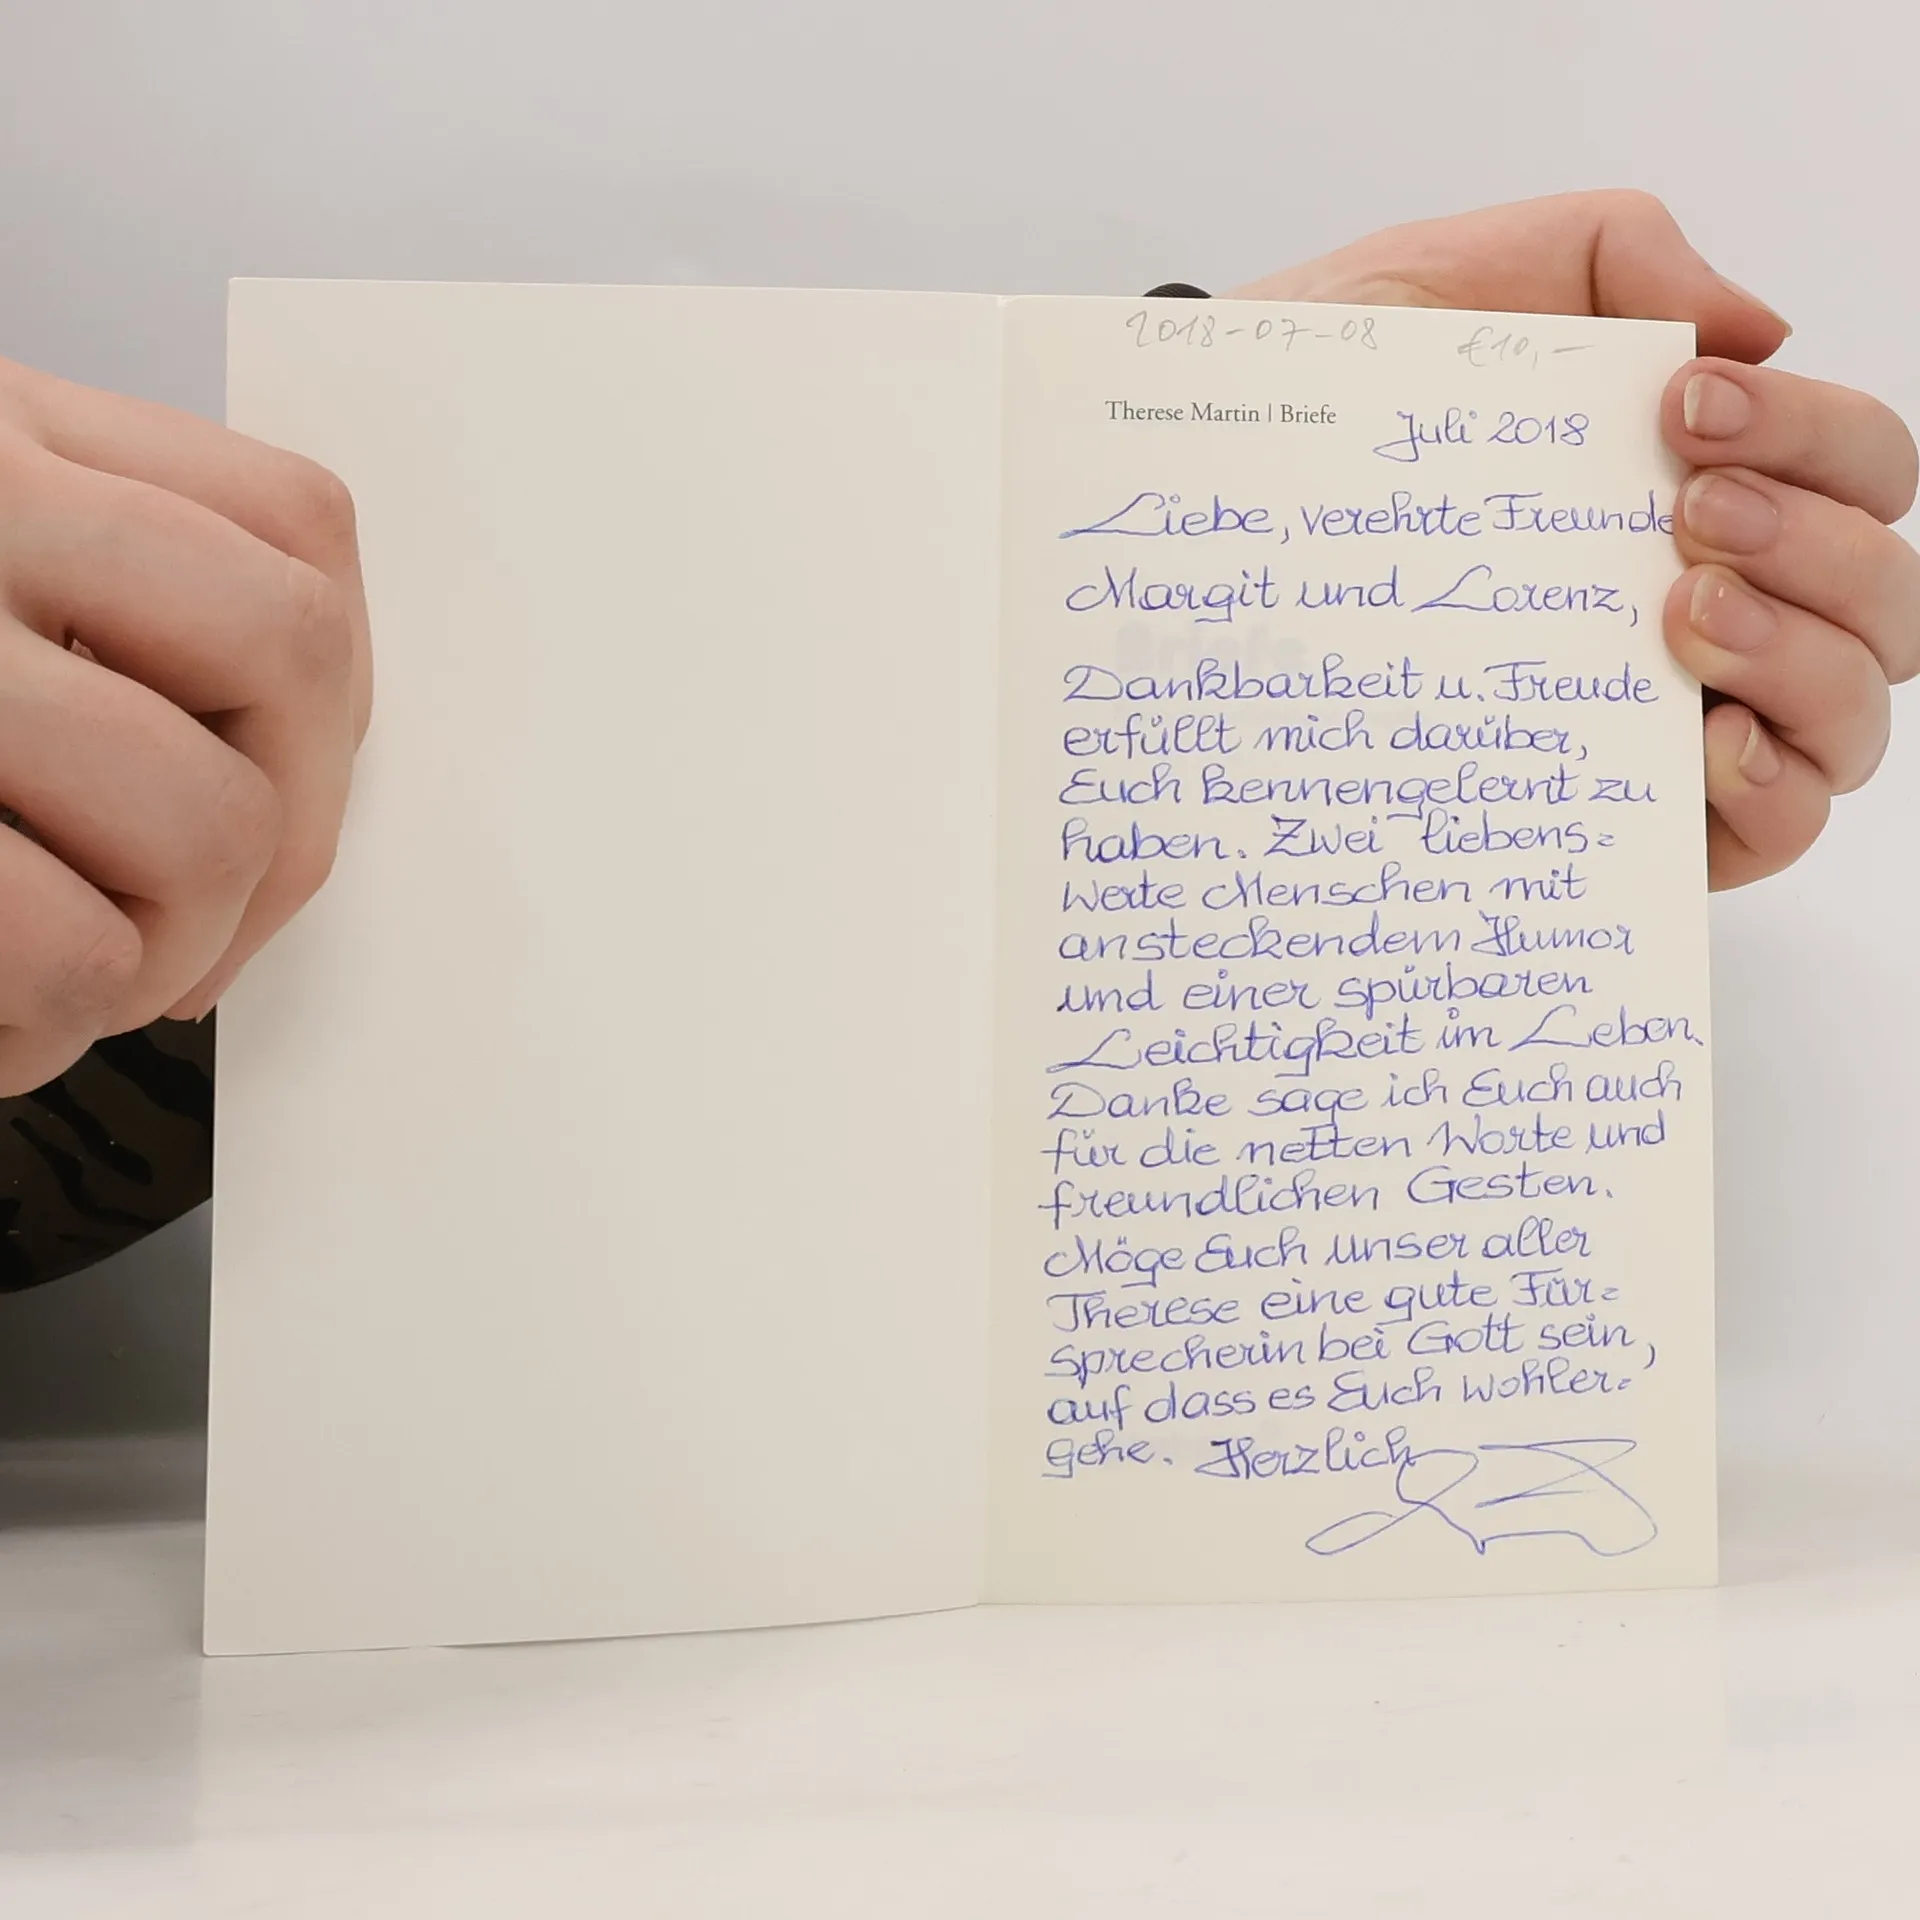 2018-07-08 €10,-
Therese Martin | Briefe
Juli 2018
Liebe, verehrte Freunde
Margit und Lorenz,
Dankbarkeit u. Freude
erfüllt mich darüber,
Euch kennengelernt zu
haben. Zwei liebens=
werte Menschen mit
ansteckendem Humor
und einer spürbaren
Leichtigkeit im Leben.
Danke sage ich Euch auch
für die netten Worte und
freundlichen Gesten.
Möge Euch unser aller
Therese eine gute Für=
sprecherin bei Gott sein,
auf dass es Euch wohler=
gehe. Herzlich